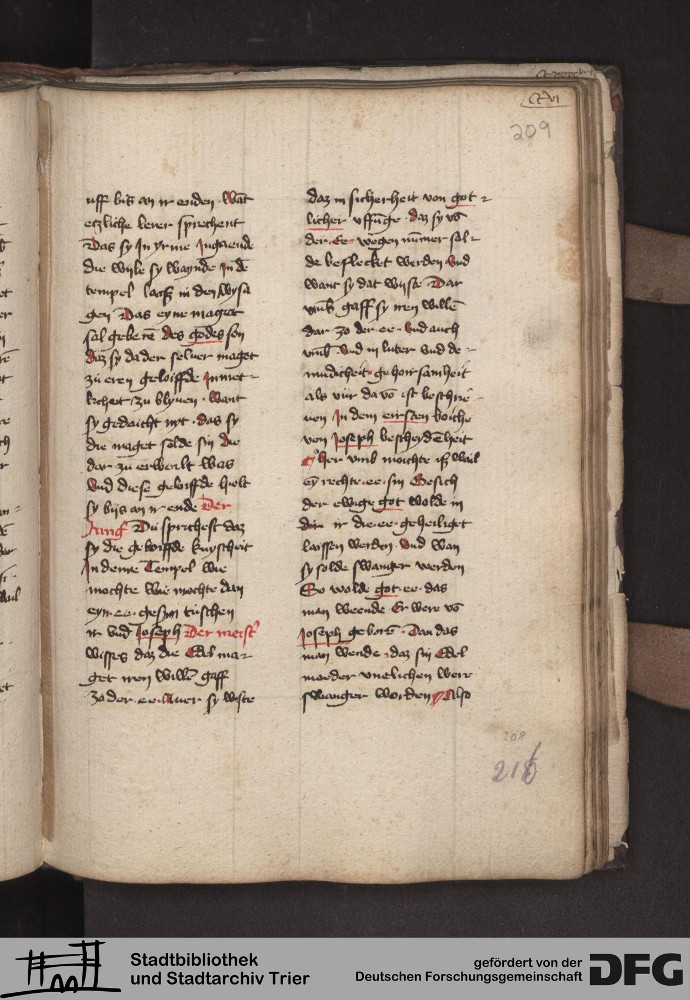 209
uff bis an ir enden. Want
etzliche lerer sprechent
Das sy in yrme ingaende
die wyle sy waynde in dē
tempel lachs in den wysa
gen Das eyne maget
sal geberē des godes son
daz sy da der seluer maget
zū eren geloiffde inniet-
licheit zu blyuen. Want
sy gedaicht nyt. das sy
die maget solde sin die
dar zū erwerlt was
Und diese geloiffde hielt
sy bijs an ir ende Der
Jung Du sprichest daz
sy die geloiffde kuyscheit
In deme Tempel wie
mochte wie mochte dan
eyn .ee. gesyn tuschen
ir vnd Joseph Der meist
wisses daz die Edel ma-
get iren willē gaff
zo der .ee. Auer sy wiste
daz in sicherheit von got-
licher
der .Ee. wegen nūmer sal-
de beflecket werden Vnd
want sy dat wyste. Dar
vmb gaff sy iren willē
dar zo der .ee. Vnd auch
vmb. Vnd in luter vnd de-
mudicheit gehoirsamheit
als vur da vō ist beschrie-
uen In dem eirsten boiche
von Joseph bescheydēheit
her vmb moichte iß wail
ey rechte .ee. sin Gesich
der ewige got wolde in
ir die .ee. geheiliget
laissen werden. Vnd wan
sy solde swanger werden
So wolde got .ee. das
man weende Er were vō
Joseph geborē. Dan das
man wende. daz sin Edel
moeder vnelichen were
swanger worden. Also
208
216
Stadtbibliothek
und Stadtarchiv Trier
gefördert von der
Deutschen Forschungsgemeinschaft
DFG